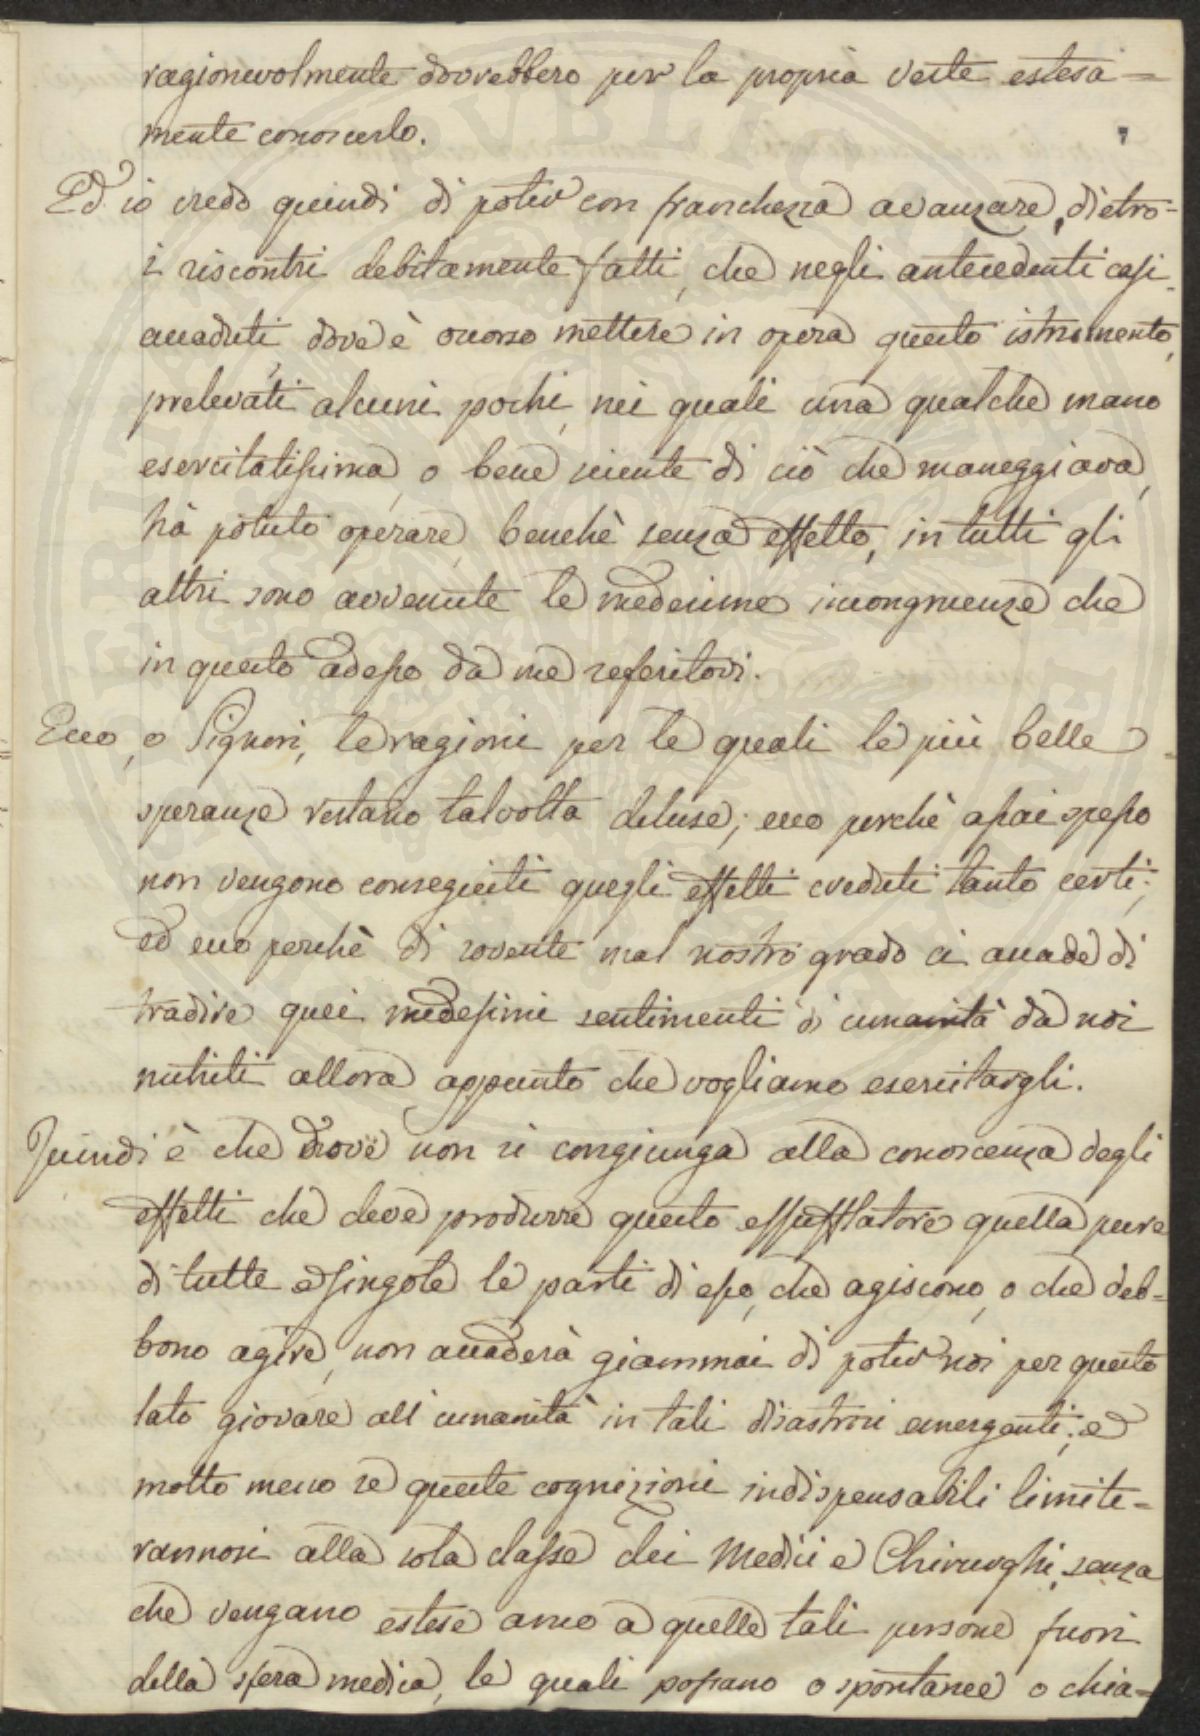 ragionevolmente dovrebbero per la propria veste estesa=
mente conoscerlo.
Ed io credo quindi di poter con franchezza avanzare, dietro
i riscontri debitamente fatti, che negli antecedenti casi
accaduti, dove è occorso mettere in opera questo istrumento,
prelevati alcuni pochi, nei quali una qualche mano
esercitatissima, o bene sciente di ciò che maneggiava,
hà potuto operare, benchè senza effetto, in tutti gli
altri sono avvenute le medesime incongruenze che
in questo adesso da me referitovi.
Ecco, o Signori, le ragioni per le quali le più belle
speranze restano talvolta deluse; ecco perchè assai spesso
non vengono conseguiti quegli effetti creduti tanto certi;
ed ecco perchè di sovente mal nostro grado ci accade di
tradire quei medesimi sentimenti di umanità da noi
nutriti allora appunto che vogliamo esercitargli.
Quindi è che dove non si congiunga alla conoscenza degli
effetti che deve produrre questo essufflatore quella pure
di tutte e singole le parti di esso, che agiscono, o che deb=
bono agire, non accaderà giammai di poter noi per questo
lato giovare all'umanità in tali disastrosi emergenti; e
molto meno se queste cognizioni indispensabili limite=
rannosi alla sola classe dei Medici e Chirurghi, senza
che vengano estese anco a quelle tali persone fuori
della sfera medica, le quali possano o spontanee o chia=